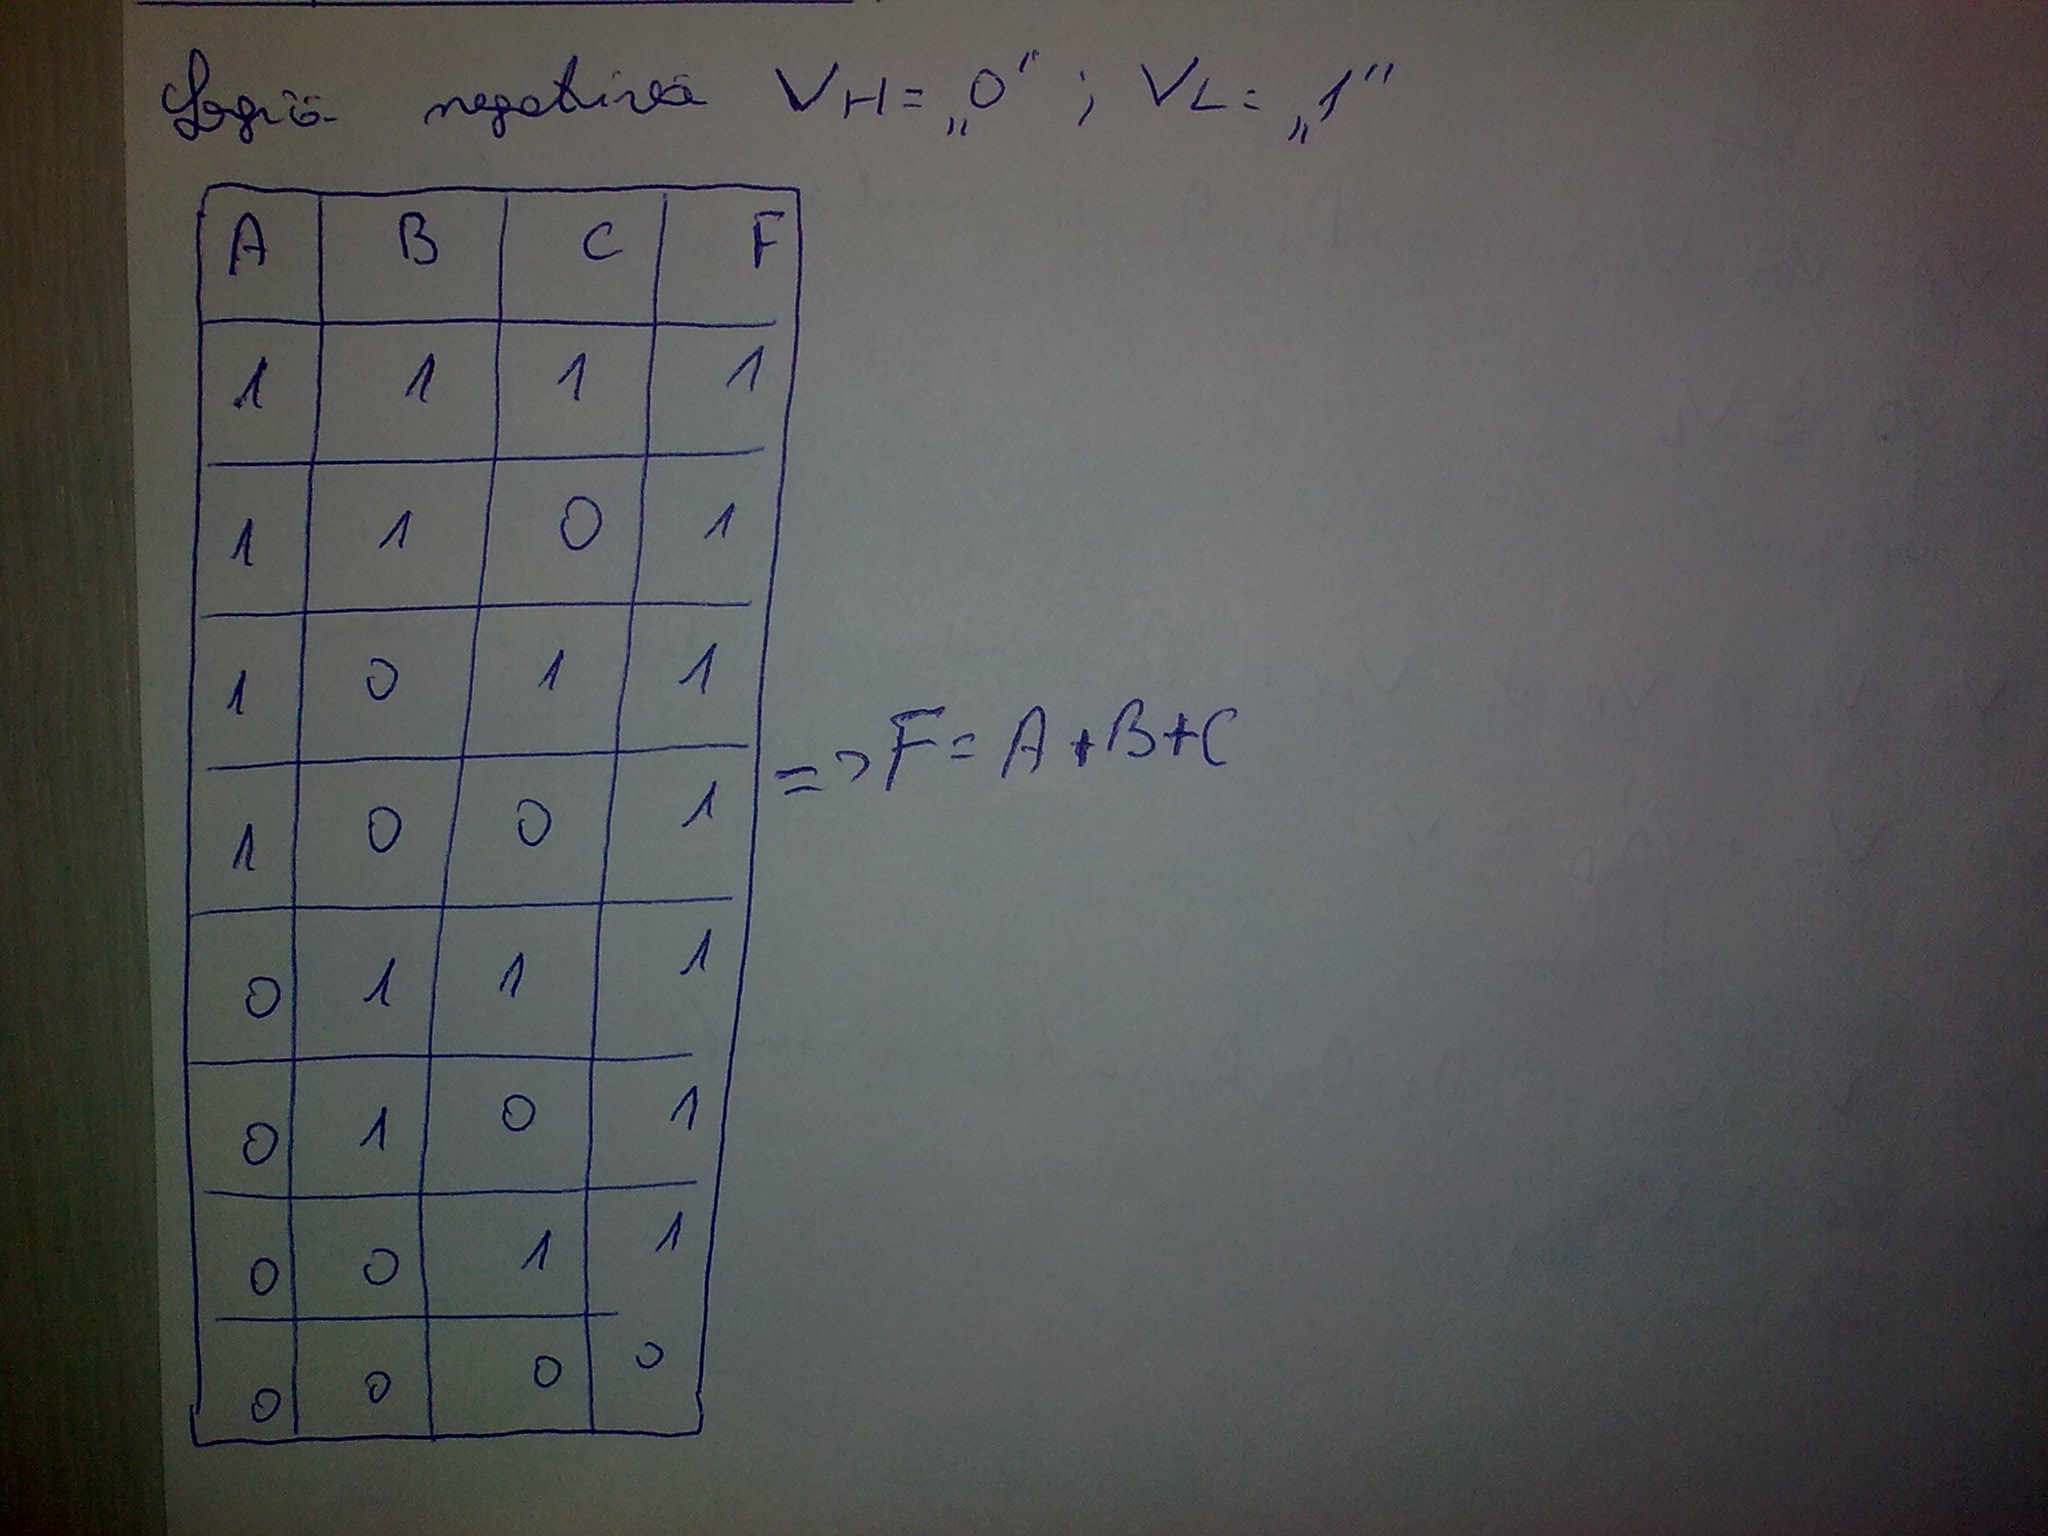 Logică negativă VH = „0" ; VL = „1"
A B C F
1 1 1 1
1 1 0 1
1 0 1 1
1 0 0 1
=> F = A + B + C
0 1 1 1
0 1 0 1
0 0 1 1
0 0 0 0